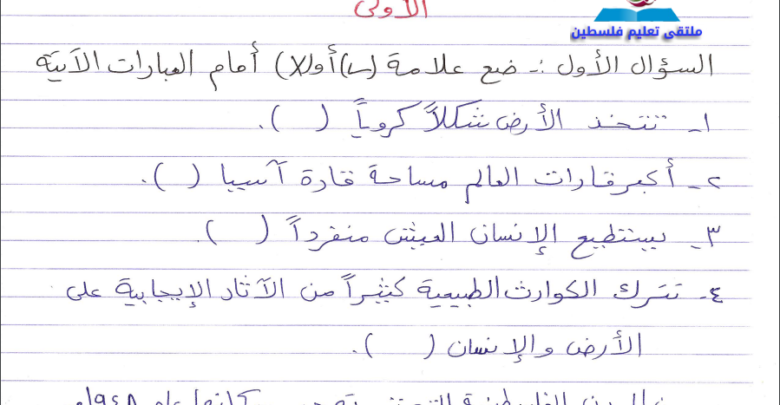 الأولى
ملتقى تعليم فلسطين
السؤال الأول :- ضع علامة (✓) أو (X) أمام العبارات الآتية
١- تتخذ الأرض شكلاً كروياً ( ).
٢- أكبر قارات العالم مساحة قارة آسيا ( ).
٣- يستطيع الإنسان العيش منفرداً ( ).
٤- تترك الكوارث الطبيعية كثيراً من الآثار الإيجابية على
الأرض والإنسان ( ).
المدن الفلسطينية التي عام ١٩٤٨م